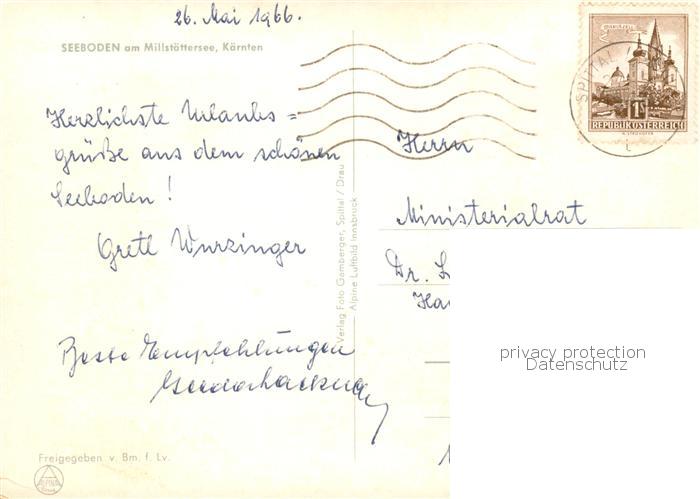 26. Mai 1966.
SEEBODEN am Millstättersee, Kärnten
Herzlichste Urlaubs=
grüße aus dem schönen
Seeboden!
Gretl Wurzinger
Beste Empfehlungen
Freigegeben v. Bm. f. Lv.
ALPINA
Verlag Foto Gamberger, Spittal / Drau
Alpine Luftbild Innsbruck
SPITTAL
1S
REPUBLIK ÖSTERREICH
Herrn
Ministerialrat
Dr.
privacy protection
Datenschutz